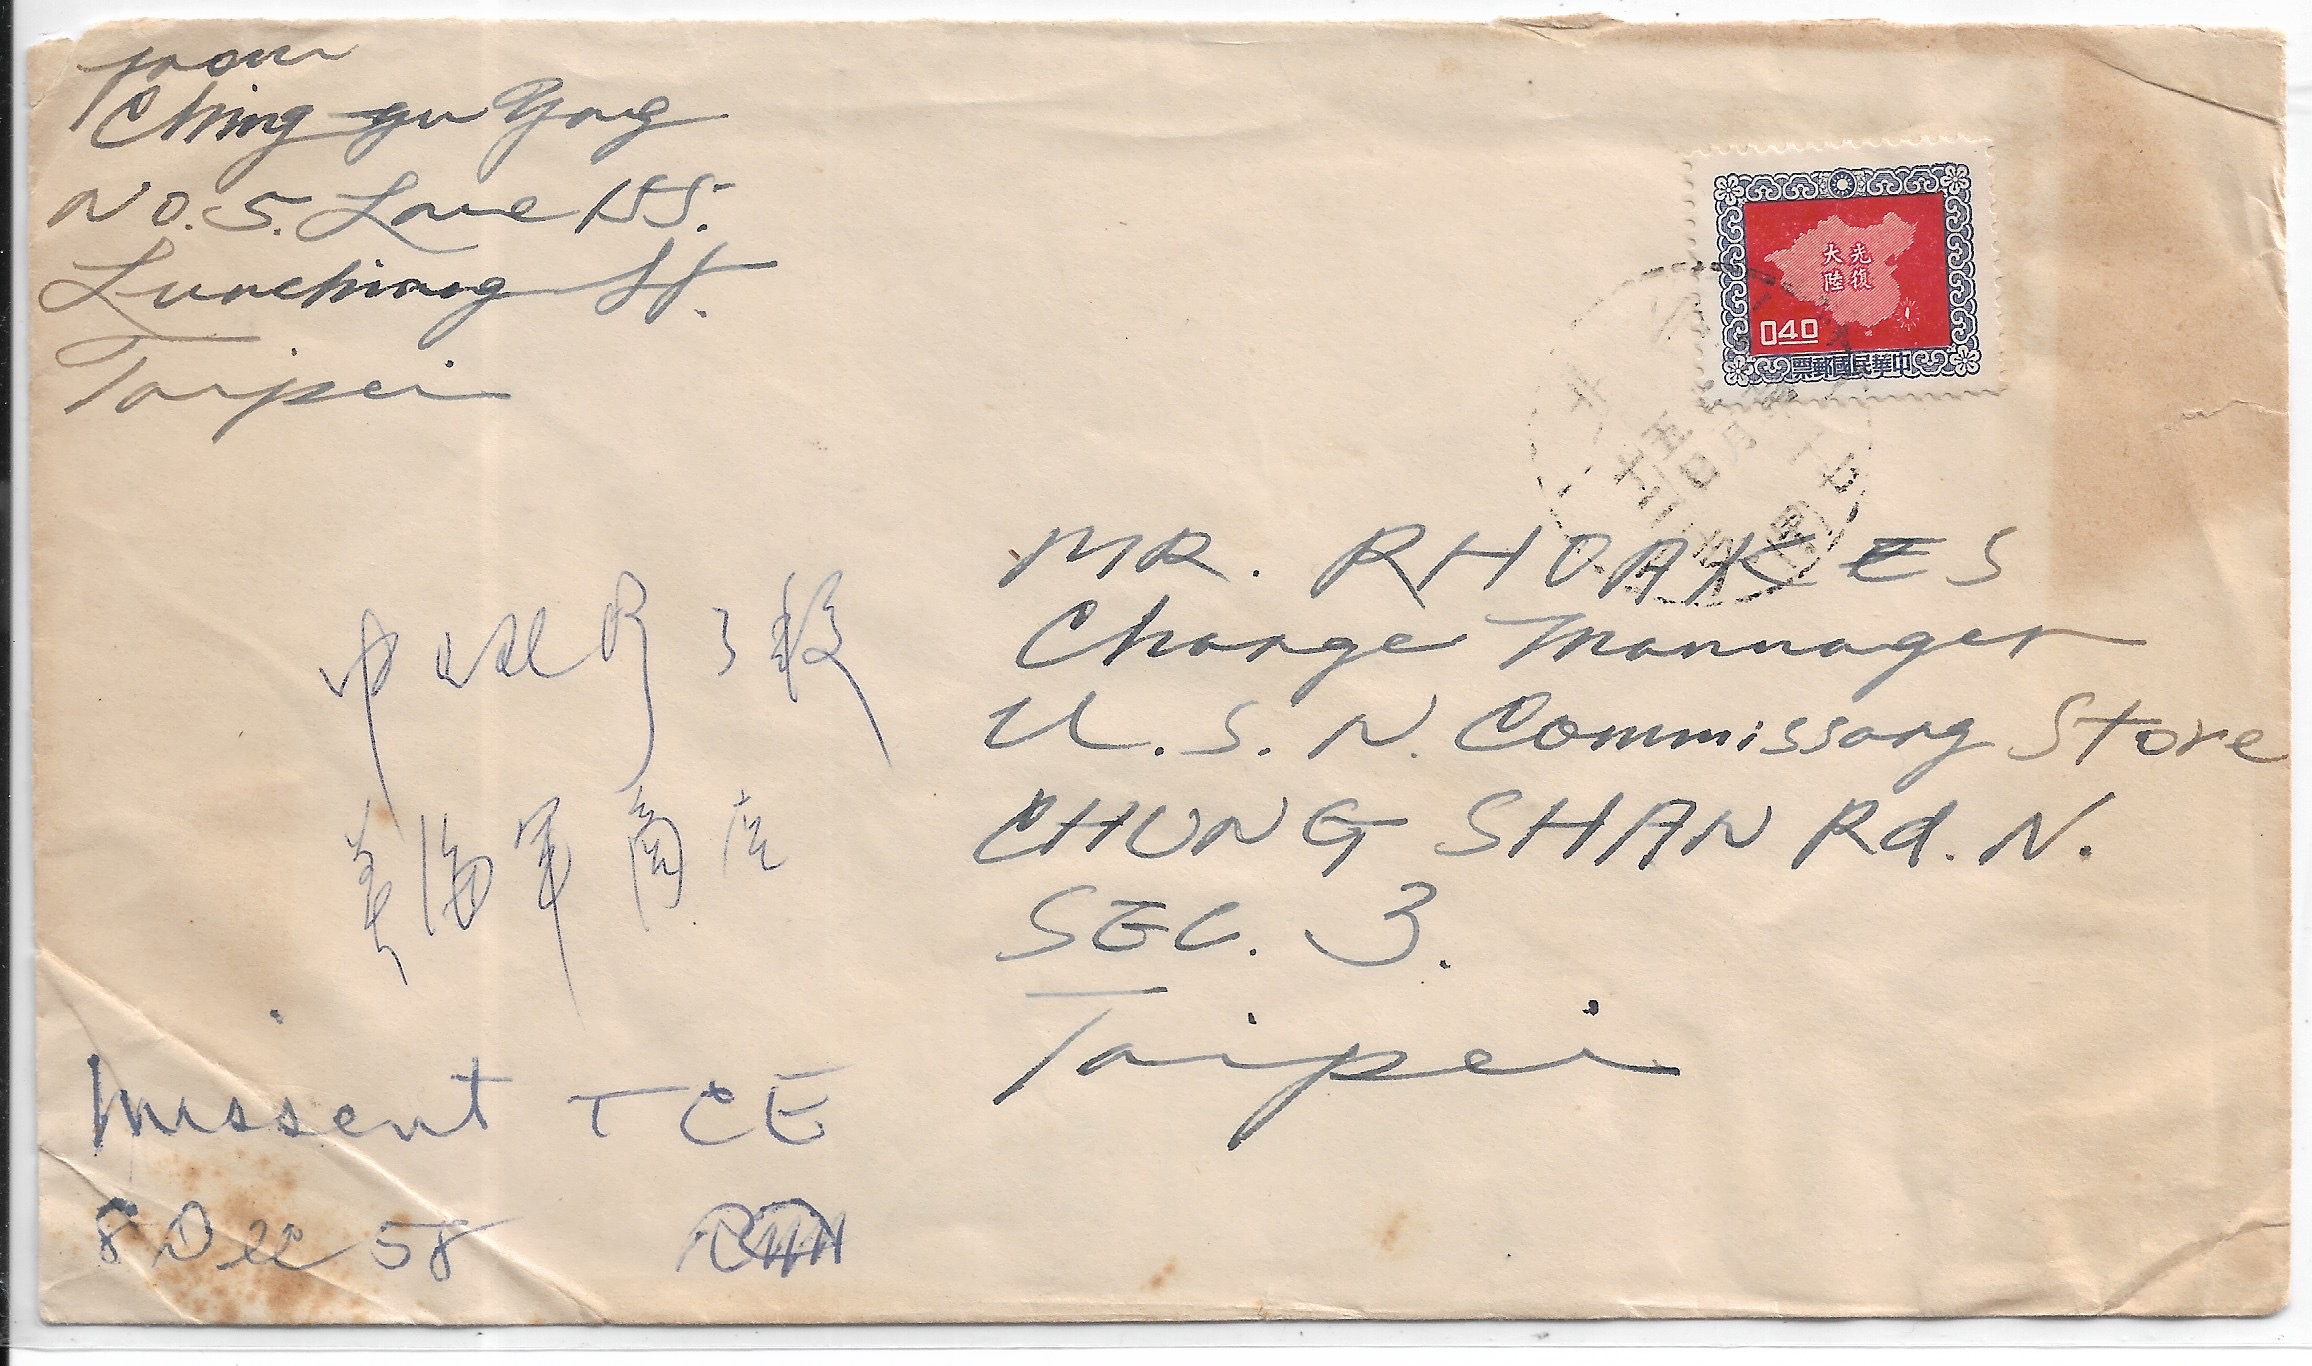 from
Ching gu Yang
NO. 5. Lane 155.
Lunchiang St.
Taipei
光復
大陸
040
中華民國郵票
MR. RHOAKES
Charge Mannager
U.S.N. Commissary Store
CHUNG SHAN Rd. N.
SEC. 3.
Taipei
美海軍商店
Missent TCE
8 Dec 58